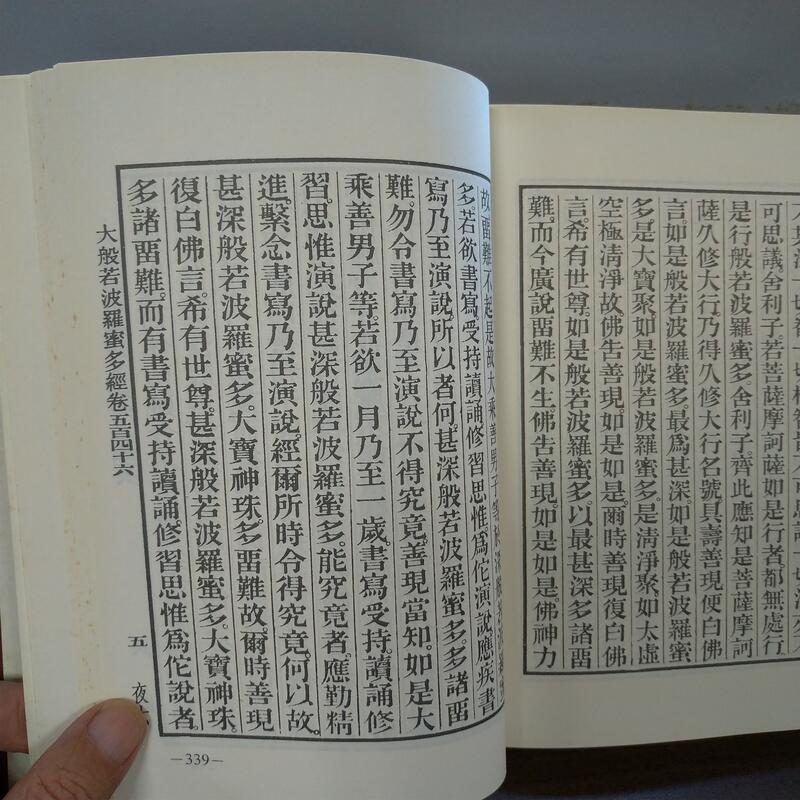 可思議。舍利子。若菩薩摩訶薩如是行者。都無處行
是行般若波羅蜜多。舍利子。齊此應知是菩薩摩訶
薩久修大行。乃得久修大行名號。具壽善現便白佛
言。如是般若波羅蜜多。最爲甚深。如是般若波羅蜜
多。是大寶聚。如是般若波羅蜜多。是清淨聚。如太虛
空極清淨故。佛告善現。如是如是。爾時善現復白佛
言。希有世尊。如是般若波羅蜜多。以最甚深多諸畱
難。而今廣說畱難不生。佛告善現。如是如是。佛神力
故。畱難不起。是故大乘善男子等於深般若波羅蜜
多。若欲書寫。受持讀誦。修習思惟。爲佗演說。應疾書
寫乃至演說。所以者何。甚深般若波羅蜜多。多諸畱
難。勿令書寫乃至演說不得究竟。善現當知。如是大
乘善男子等。若欲一月乃至一歲。書寫受持。讀誦修
習。思惟演說甚深般若波羅蜜多。能究竟者。應勤精
進。繫念書寫乃至演說。經爾所時令得究竟。何以故。
甚深般若波羅蜜多。大寶神珠。多畱難故。爾時善現
復白佛言。希有世尊。甚深般若波羅蜜多。大寶神珠。
多諸畱難。而有書寫受持讀誦。修習思惟爲佗說者。
大般若波羅蜜多經卷五百四十六
五
夜
—339—